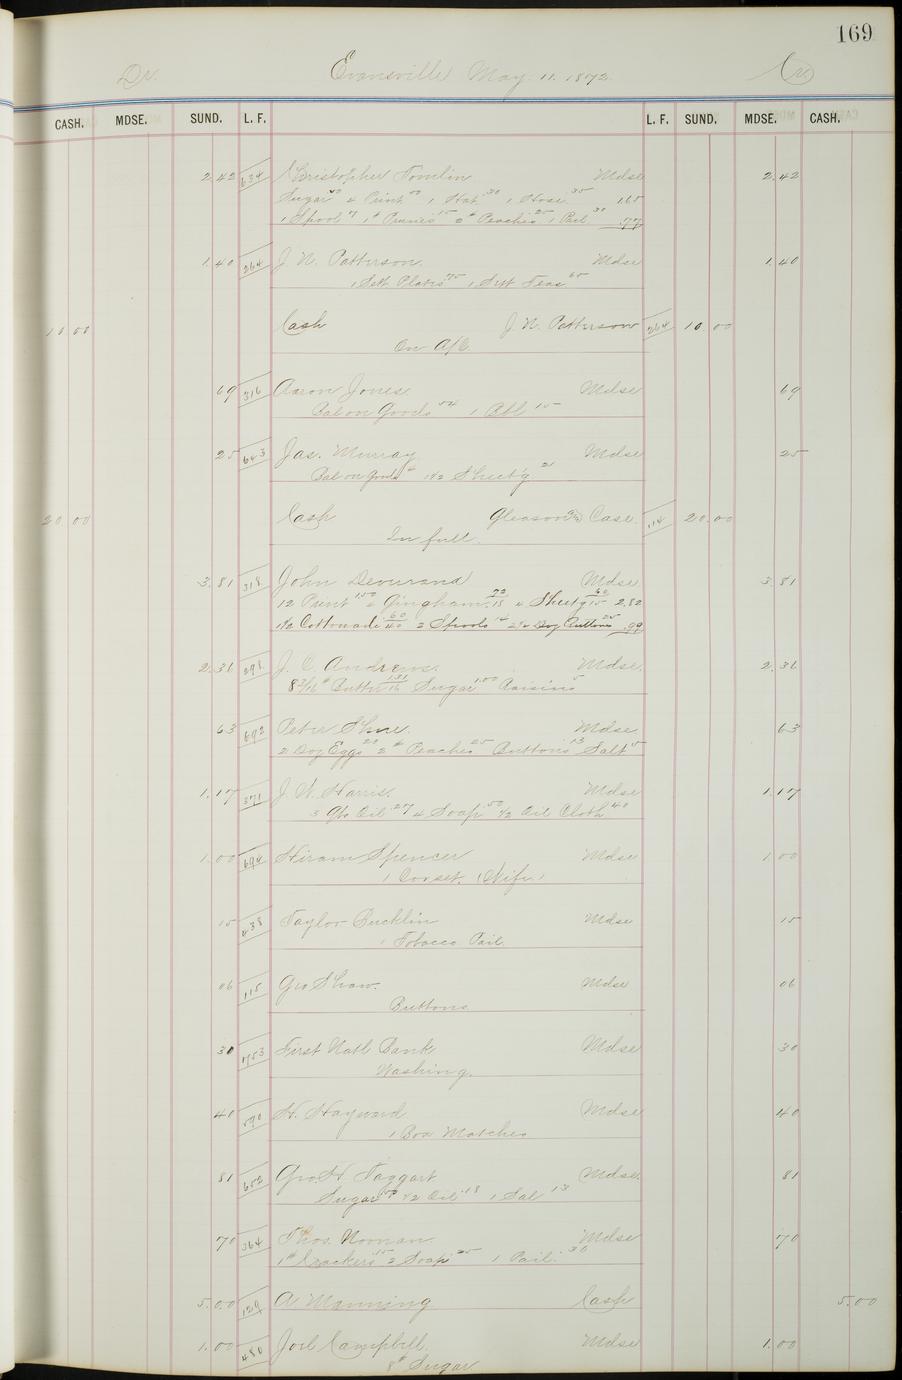 169
Dr. Evansville May 11. 1872. Cr
CASH. MDSE. SUND. L. F. L. F. SUND. MDSE. CASH.
2.42 634 Christopher Tomlin Mdse 2.42
Sugar 4 Print 1 Hat 30 1 Hose 35 1.65
1 Spool 7 1# Prunes 15 2# Peaches 25 1 Pail 30 .77
1.40 264 J. N. Patterson. Mdse 1.40
1 Sett Plates 75 1 Sett Teas 65
10 00 Cash J. N. Patterson 264 10 00
On A/C.
69 316 Aaron Jones. Mdse 69
Bal on Goods 54 1 Bbl 15
25 643 Jas. Murray Mdse 25
Bal on Goods 4 1 1/2 Sheet'g 21
20 00 Cash Gleason & Case. 114 20.00
In full.
3.81 318 John Devurand Mdse 3.81
12 Print 150 4 Gingham 72/18 4 Sheet'g 60/15 2.82
1 1/2 Cottonade 60/40 2 Spools 14 2 1/2 Doz Buttons 25 .99
2.31 298 J. C. Andrews. Mdse. 2.31
8 3/16# Butter 1.31/16 Sugar 1.00 Raisins
63 692 Peter Shue. Mdse 63
2 Doz Eggs 20 2# Peaches 25 Buttons 13 Salt 5
1.17 371 J. W. Harris. Mdse 1.17
3 Qts Oil 27 4 Soap 50 1/2 Oil Cloth 40
1.00 694 Hiram Spencer Mdse 1.00
1 Corset. (Wife)
15 438 Taylor Bucklin Mdse 15
1 Tobacco Pail.
06 115 Geo Shaw. Mdse 06
Buttons.
30 753 First Natl Bank Mdse 30
Washing.
40 590 H. Hayward Mdse 40
1 Box Matches
81 652 Geo H Taggart Mdse. 81
Sugar 50 1/2 Oil 18 1 Sal 13
70 364 Thos. Noonan. Mdse 70
1# Crackers 15 2 Soap 25 1 Pail. 30
5.00 129 A. Manning Cash 5.00
1.00 480 Joel Campbell. Mdse 1.00
8# Sugar